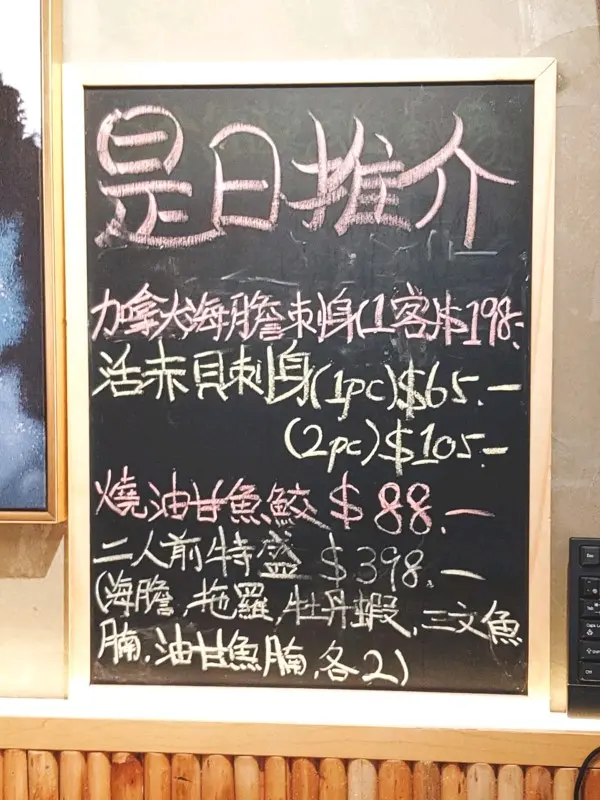 是日推介
加拿大海膽刺身(1客)$198.-
活赤貝刺身(1pc)$65.-
(2pc)$105.-
燒油甘魚鮫 $88.-
二人前特盛 $398.-
(海膽,拖羅,牡丹蝦,三文魚
腩,油甘魚腩,各2)